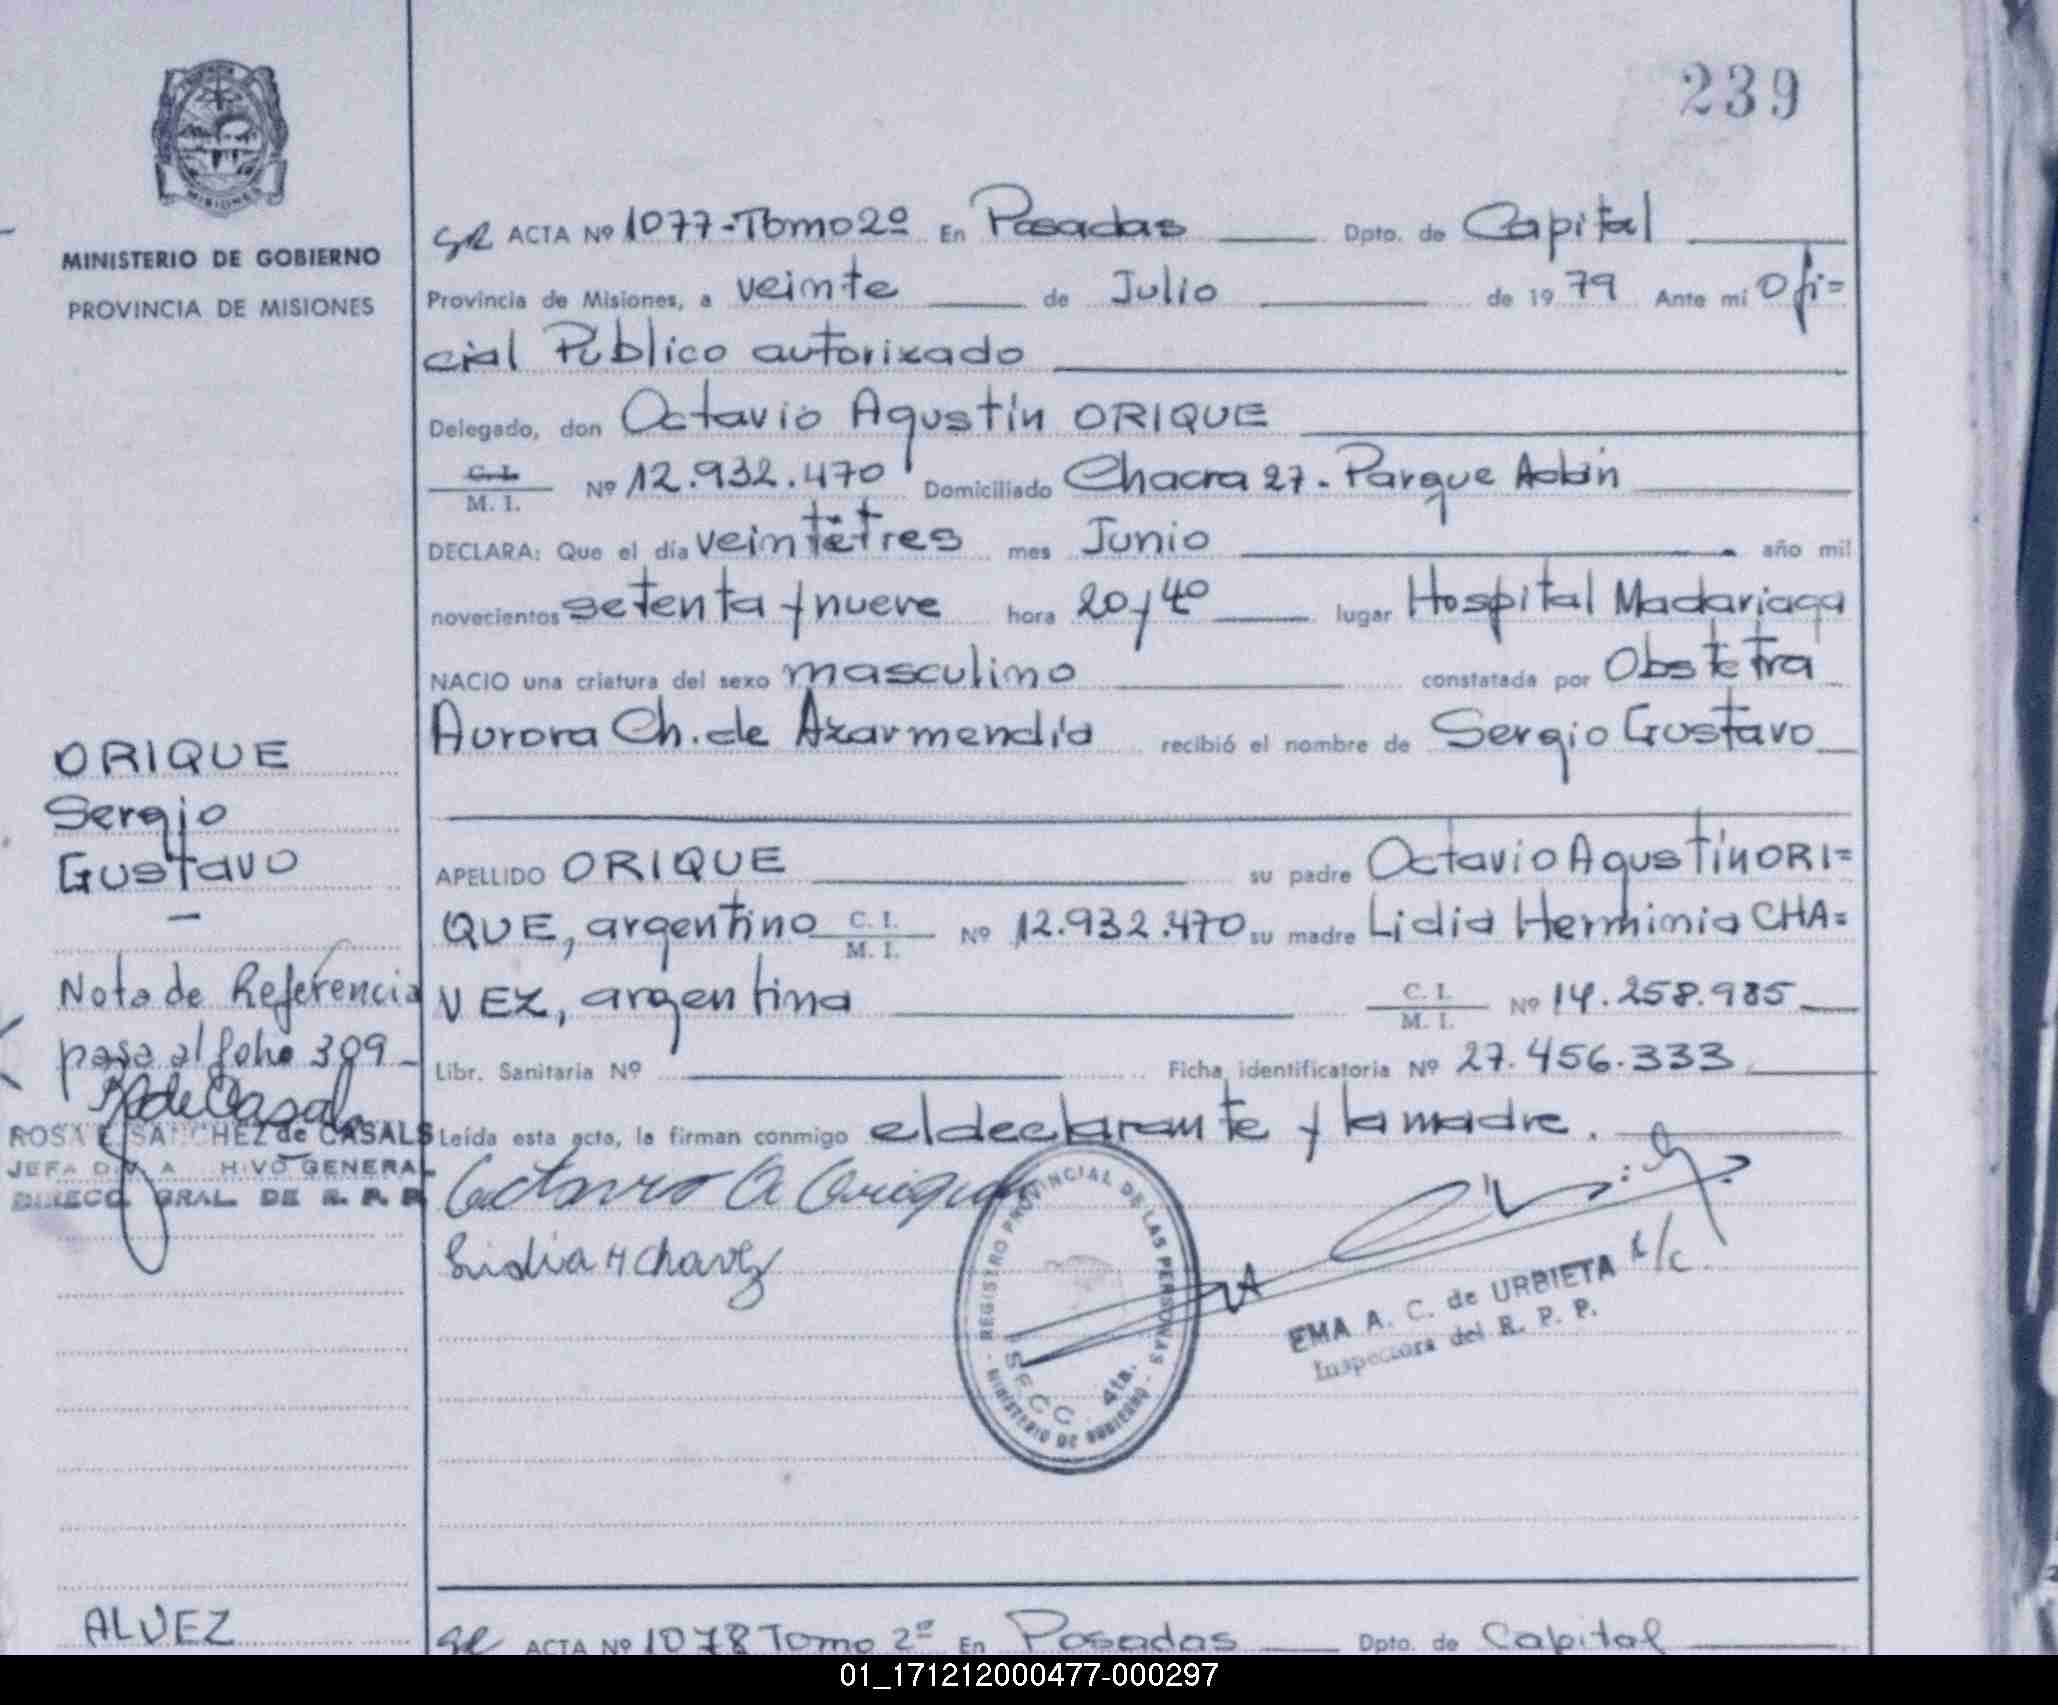 239
MINISTERIO DE GOBIERNO
PROVINCIA DE MISIONES
SR ACTA Nº 1077-Tomo 2º En Posadas Dpto. de Capital
Provincia de Misiones, a veinte de Julio de 19 79 Ante mi Ofi=
cial Público autorizado
Delegado, don Octavio Agustín ORIQUE
C. I.
M. I. Nº 12.932.470 Domiciliado Chacra 27 - Parque Adan
DECLARA: Que el día veintetres mes Junio año mil
novecientos setenta y nueve hora 20 y 40 lugar Hospital Madariaga
NACIO una criatura del sexo masculino constatada por Obstetra
Aurora Ch. de Azarmendía recibió el nombre de Sergio Gustavo
APELLIDO ORIQUE su padre Octavio Agustín ORI=
QUE, argentino C. I. M. I. Nº 12.932.470 su madre Lidia Herminia CHA=
VEZ, argentina C. I. M. I. Nº 14.258.985
Libr. Sanitaria Nº Ficha identificatoria Nº 27.456.333
Leída esta acta, la firman conmigo el declarante y la madre.
Octavio A Orique
Lidia H Chavez
REGISTRO PROVINCIAL DE LAS PERSONAS
- MINISTERIO DE GOBIERNO -
SECC. 4ta.
EMA A. C. de URBIETA
a/c
Inspectora del R. P. P.
ORIQUE
Sergio
Gustavo
Nota de Referencia
pasa al folio 309
R de Casals
ROSA E. SANCHEZ de CASALS
JEFA DIV. ARCHIVO GENERAL
DIRECC. GRAL. DE R. P. P.
ALVEZ
SR ACTA Nº 1078 Tomo 2º En Posadas Dpto. de Capital
01_171212000477-000297